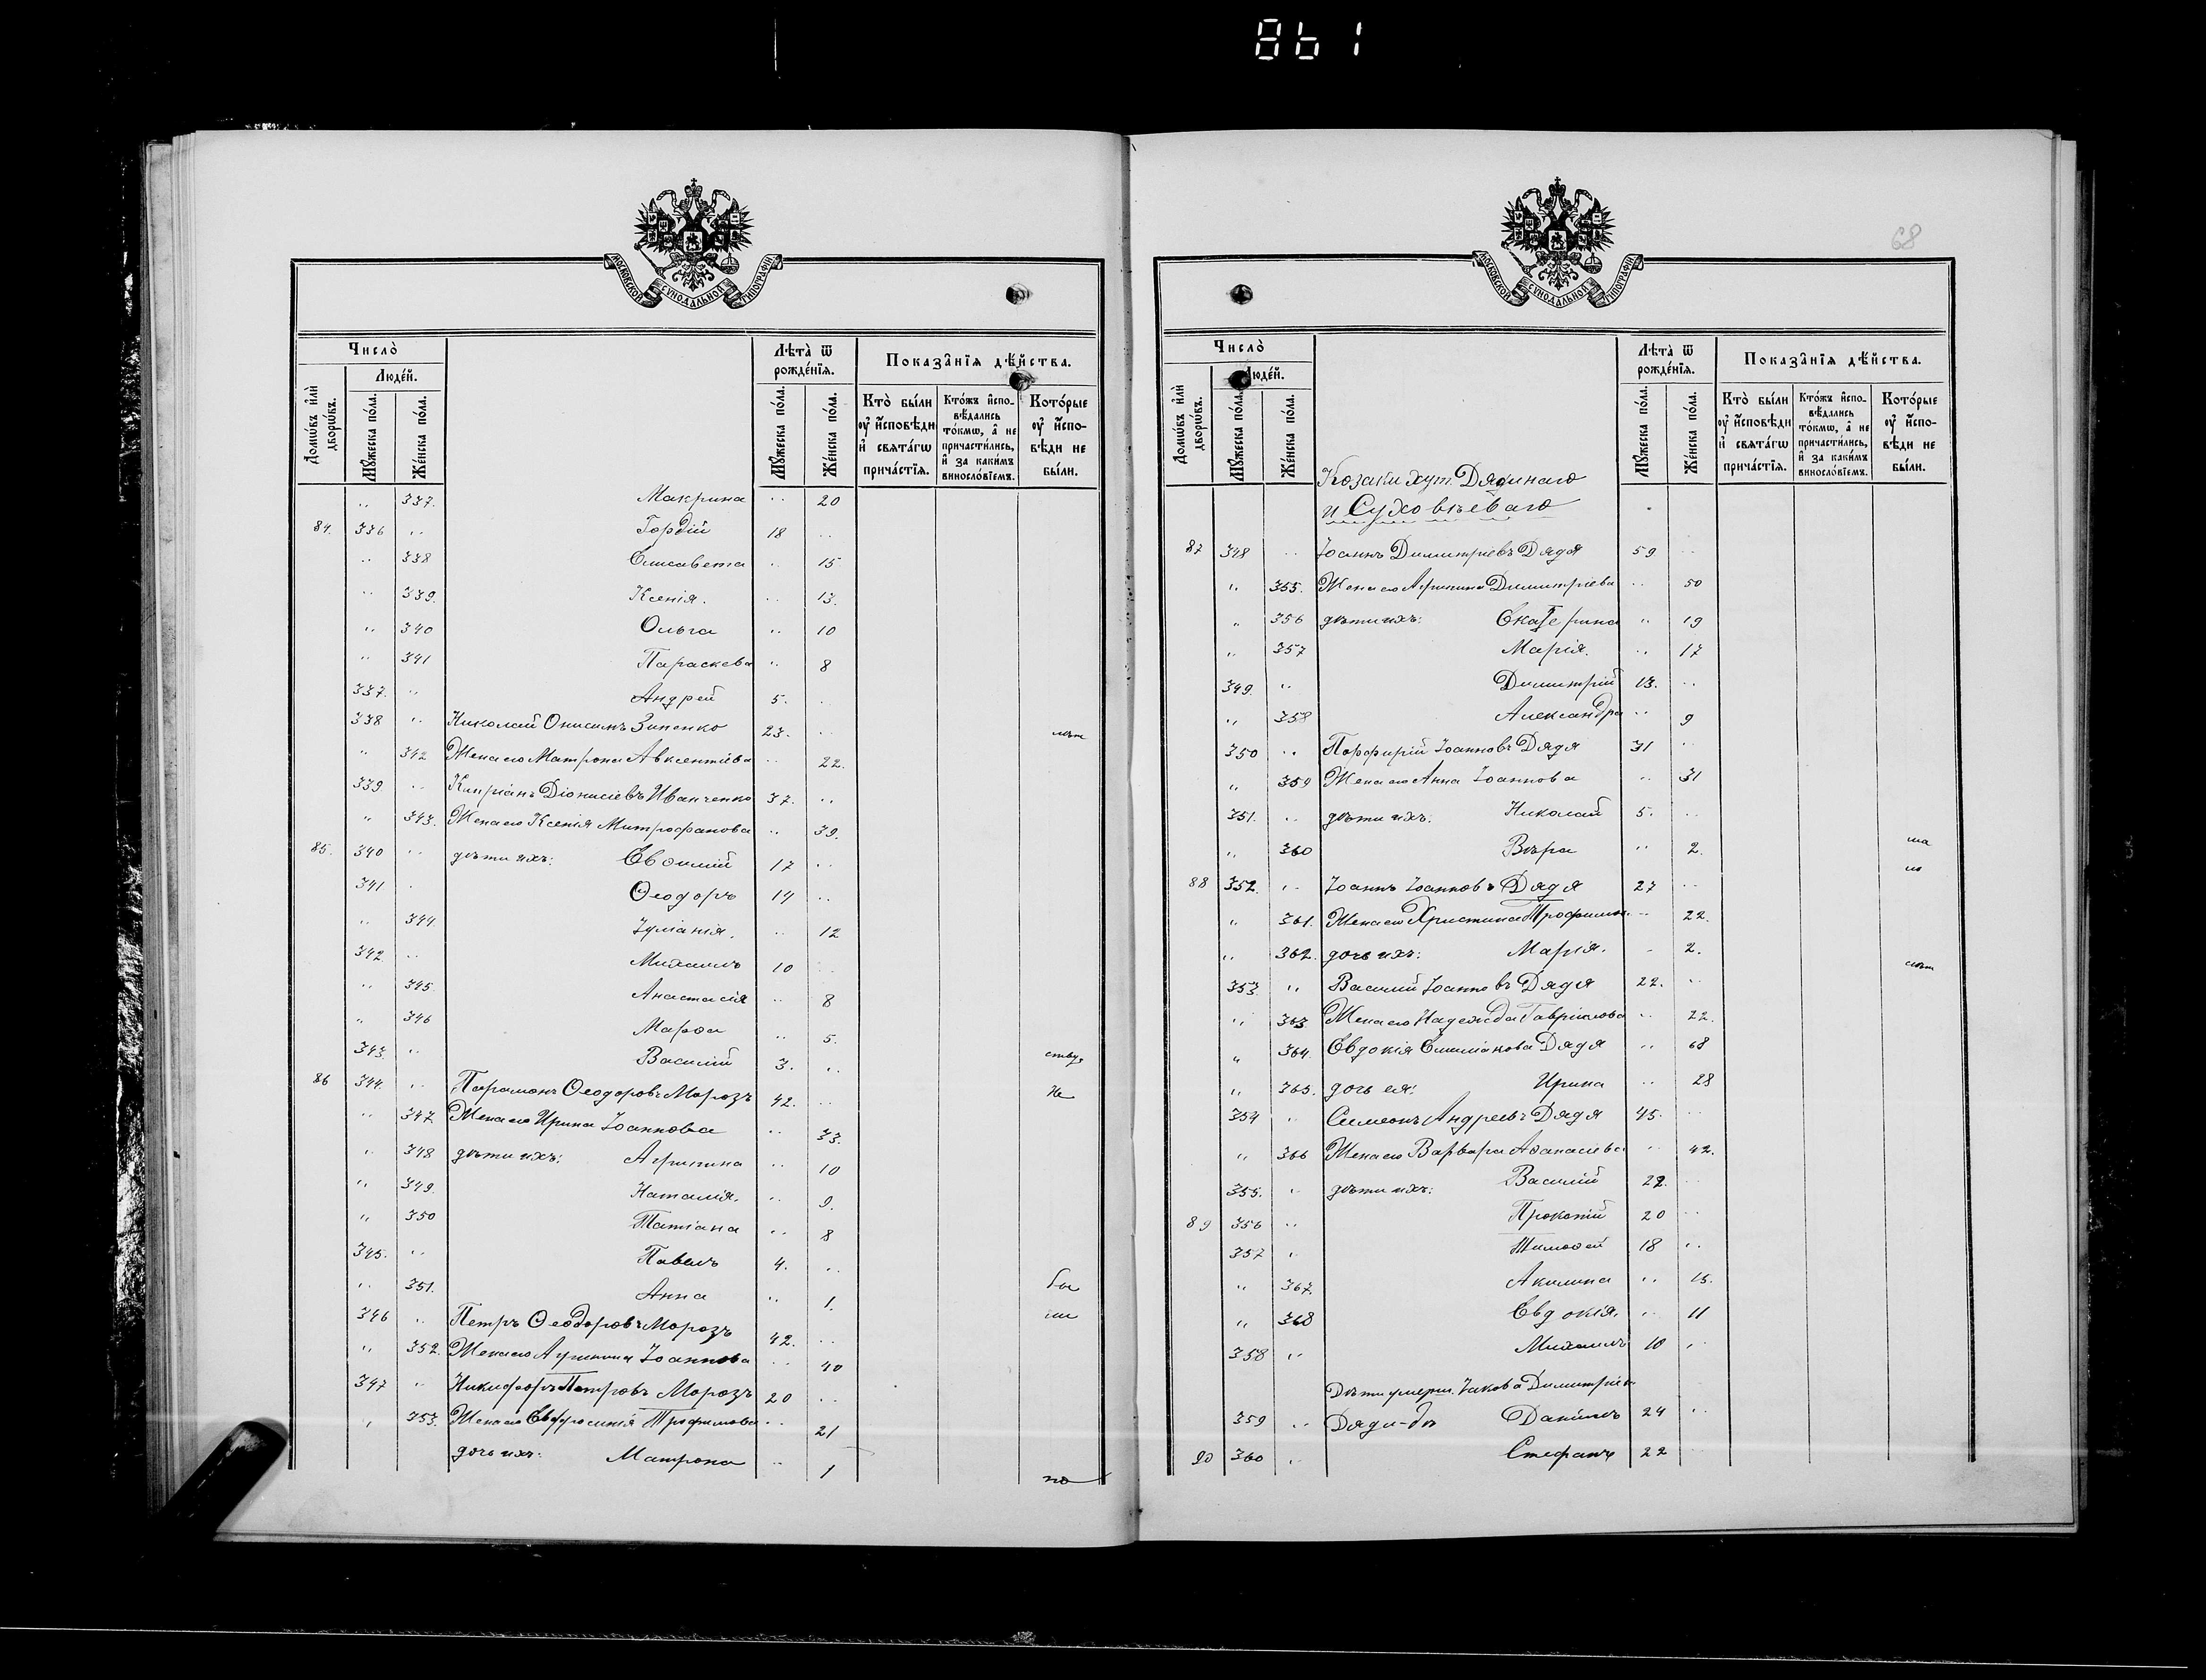 861
МОСКОВСКОЙ СУНОДАЛЬНОЙ ТИПОГРАФІИ
Число̀
Людéй.
Домѡ́въ и҆лѝ дворѡ́въ.
Мꙋ́жеска по́ла.
Же́нска по́ла.
Лѣта̀ ѿ рожде́нїѧ.
Мꙋ́жеска по́ла.
Же́нска по́ла.
Показа̑нїѧ дѣ́йства.
Кто̀ бы́ли ᲂу҆ и҆сповѣди и҆ свѧта́гѡ прича́стїѧ.
Кто́жъ и҆сповѣ́дались то́кмѡ, а҆ не причасти́лись, и҆ за каки́мъ винослові́емъ.
Кото́рые ᲂу҆ и҆сповѣди не бы́ли.
„ 337. Макрина „ 20
84. 336 „ Гордій 18 „
„ 338 Елисавета „ 15
„ 339. Ксенія. „ 13.
„ 340 Ольга „ 10
„ 341 Параскева „ 8
337. „ Андрей 5. „
338 „ Николай Онисимъ Зиненко 23. „
„ 342 Жена его Матрона Авксентіева „ 22.
339 „ Кипріанъ Діонисіевъ Иванченко 37. „
„ 343. Жена его Ксенія Митрофанова „ 39.
85. 340 „ дѣти ихъ: Евѳимій 17 „
341 „ Ѳеодоръ 14 „
„ 344. Іуліанія. „ 12
342. „ Михаилъ 10 „
„ 345 Анастасія „ 8
„ 346 Марѳа „ 5.
343. „ Василій 3. „ ству,
86 344. „ Парамонъ Ѳеодоровъ Морозъ 42. „ Не
„ 347 Жена его Ирина Іоаннова „ 33.
„ 348 дѣти ихъ: Агрипина „ 10
„ 349. Наталія. „ 9.
„ 350 Татіана „ 8
345. „ Павелъ 4. „
„ 351. Анна „ 1. бы
346 „ Петръ Ѳеодоровъ Морозъ 42. „ ли
„ 352. Жена его Агрипина Іоаннова „ 40
347 „ Никифоръ Петровъ Морозъ 20 „
„ 353. Жена его Евфросинія Трофимова „ 21
дочь ихъ: Матрона „ 1 по
68
МОСКОВСКОЙ СУНОДАЛЬНОЙ ТИПОГРАФІИ
Число̀
Людéй.
Домѡ́въ и҆лѝ дворѡ́въ.
Мꙋ́жеска по́ла.
Же́нска по́ла.
Лѣта̀ ѿ рожде́нїѧ.
Мꙋ́жеска по́ла.
Же́нска по́ла.
Показа̑нїѧ дѣ́йства.
Кто̀ бы́ли ᲂу҆ и҆сповѣди и҆ свѧта́гѡ прича́стїѧ.
Кто́жъ и҆сповѣ́дались то́кмѡ, а҆ не причасти́лись, и҆ за каки́мъ винослові́емъ.
Кото́рые ᲂу҆ и҆сповѣди не бы́ли.
Козаки хут. Дядинаго
и Суховѣеваго
87 348 „ Іоаннъ Димитріевъ Дядя 59 „
„ 355. Жена его Агрипина Димитріева „ 50
„ 356 дѣти ихъ: Екатерина „ 19
„ 357 Марія. „ 17
349. „ Димитрій 13. „
„ 358 Александра „ 9
350 „ Порфирій Іоанновъ Дядя 31 „
„ 359 Жена его Анна Іоаннова „ 31
351. „ дѣти ихъ: Николай 5. „
„ 360 Вѣра „ 2.
88 352. „ Іоаннъ Іоанновъ Дядя 27 „
„ 361. Жена его Христина Трофим. „ 22.
„ 362. дочь ихъ: Марія. „ 2.
353. „ Василій Іоанновъ Дядя 22. „
„ 363 Жена его Надежда Гавріилова „ 22.
„ 364. Евдокія Емиліанова Дядя „ 68
„ 365. дочь ея: Ирина „ 28
354 „ Симеонъ Андреевъ Дядя 45. „
„ 366 Жена его Варвара Аѳанасіева „ 42.
355. „ дѣти ихъ: Василій 22. „
89 356 „ Прокопій 20 „
357 „ Тимоѳей 18 „
„ 367. Акилина „ 15.
„ 368 Евдокія. „ 11
358 „ Михаилъ 10 „
Дѣти умерш. Іакова Димитріева
359 „ Дяди-бъ Даніилъ 24 „
90 360 „ Стефанъ 22